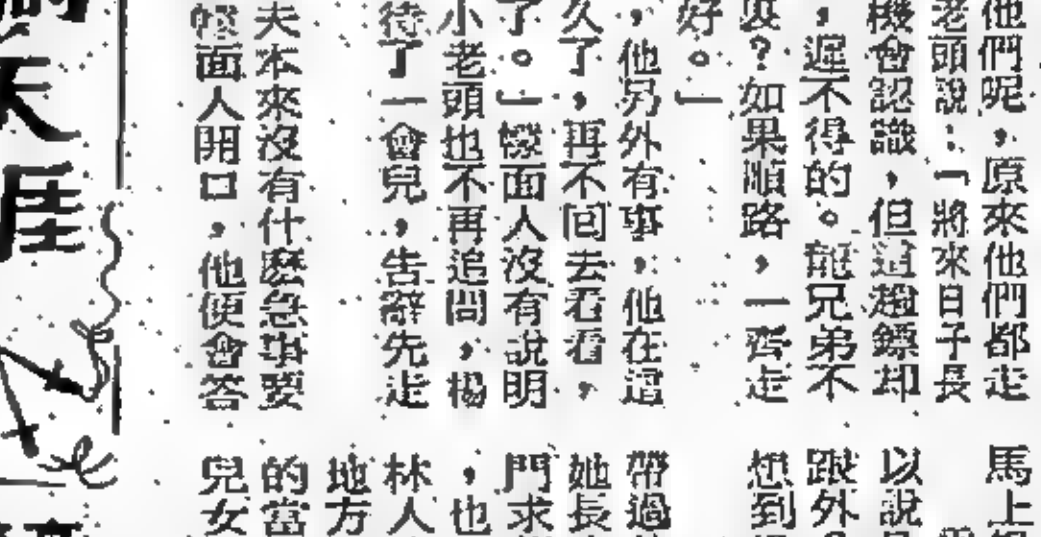 他們呢，原來他們都走
老頭說：「將來日子長
機會認識，但這趟鏢却
，遲不得的。龍兄弟不
裝？如果順路，一齊走
好。」
，他另外有事；他在這
久了，再不回去看看，
了。」幪面人沒有說明
小老頭也不再追問，楊
待了一會兒，告辭先走
夫本來沒有什麼急事要
幪面人開口，他便會答
馬上
以說
跟外
想到
帶過
她長
門求
，也
林人
地方
的當
兒女
天涯